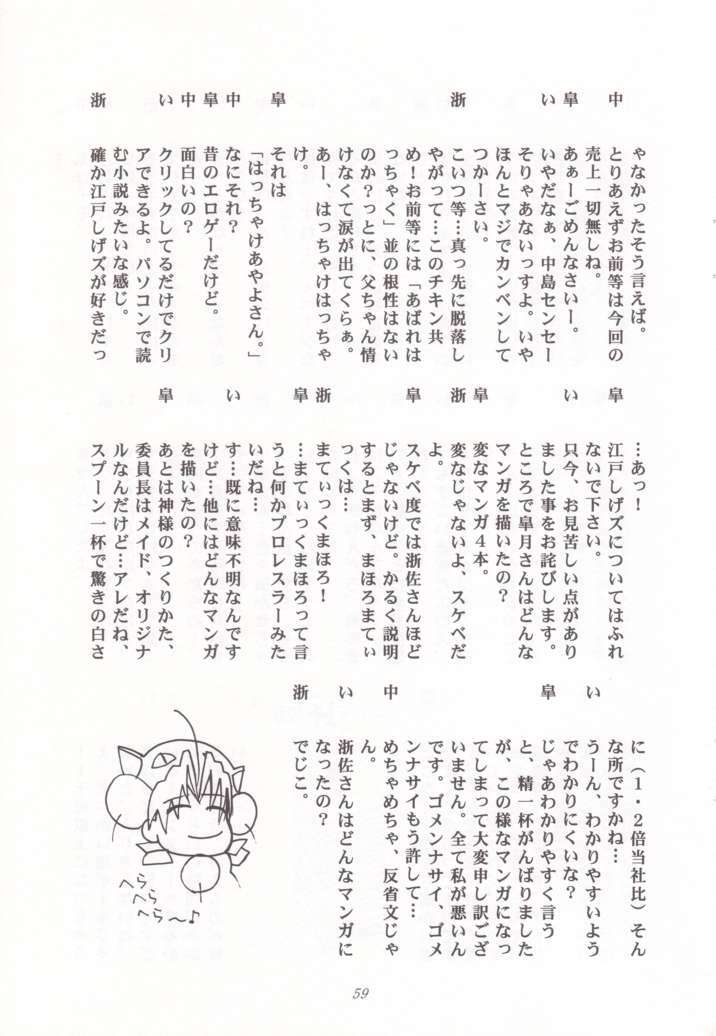 ゃなかったそう言えば。
中 とりあえずお前等は今回の
売上一切無しね。
皐 あぁーごめんなさいー。
い いやだなぁ、中島センセー
そりゃあないっすよ。いや
ほんとマジでカンベンして
つかーさい。
浙 こいつ等…真っ先に脱落し
やがって…このチキン共
め！お前等には「あばれは
っちゃく」並の根性はない
のか？っとに、父ちゃん情
けなくて涙が出てくらぁ。
あー、はっちゃけはっちゃ
け。
皐 それは
「はっちゃけあやよさん。」
中 なにそれ？
皐 昔のエロゲーだけど。
中 面白いの？
い クリックしてるだけでクリ
アできるよ。パソコンで読
む小説みたいな感じ。
浙 確か江戸しげズが好きだっ
…あっ！
皐 江戸しげズについてはふれ
ないで下さい。
い 只今、お見苦しい点があり
ました事をお詫びします。
ところで皐月さんはどんな
マンガを描いたの？
皐 変なマンガ４本。
浙 変なじゃないよ、スケベだ
よ。
皐 スケベ度では浙佐さんほど
じゃないけど。かるく説明
するとまず、まほろまてぃ
っくは…
浙 まてぃっくまほろ！
皐 …まてぃっくまほろって言
うと何かプロレスラーみた
いだね…
い す…既に意味不明なんです
けど…他にはどんなマンガ
を描いたの？
皐 あとは神様のつくりかた、
委員長はメイド、オリジナ
ルなんだけど…アレだね、
スプーン一杯で驚きの白さ
に（１・２倍当社比）そん
な所ですかね…
い うーん、わかりやすいよう
でわかりにくいな？
皐 じゃあわかりやすく言う
と、精一杯がんばりました
が、この様なマンガになっ
てしまって大変申し訳ござ
いません。全て私が悪いん
です。ゴメンナサイ、ゴメ
ンナサイもう許して…
中 めちゃめちゃ、反省文じゃ
ん。
い 浙佐さんはどんなマンガに
なったの？
浙 でじこ。
へら
へら
へら〜♪
59